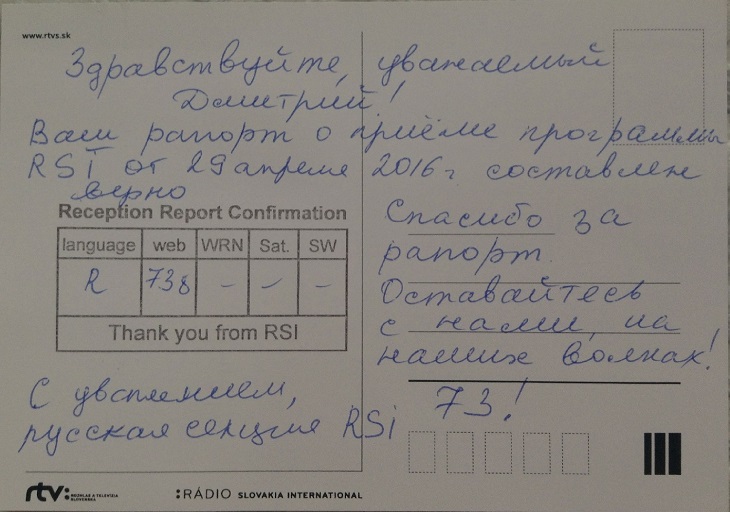 www.rtvs.sk
Здравствуйте, уважаемый
Дмитрий!
Ваш рапорт о приёме программы
RSI от 29 апреля 2016 г составлен
верно
Reception Report Confirmation
language web WRN Sat. SW
R 738 - - -
Thank you from RSI
Спасибо за
рапорт.
Оставайтесь
с нами, на
наших волнах!
73!
С уважением,
русская секция RSi
rtv: ROZHLAS A TELEVÍZIA
SLOVENSKA
:RÁDIO SLOVAKIA INTERNATIONAL